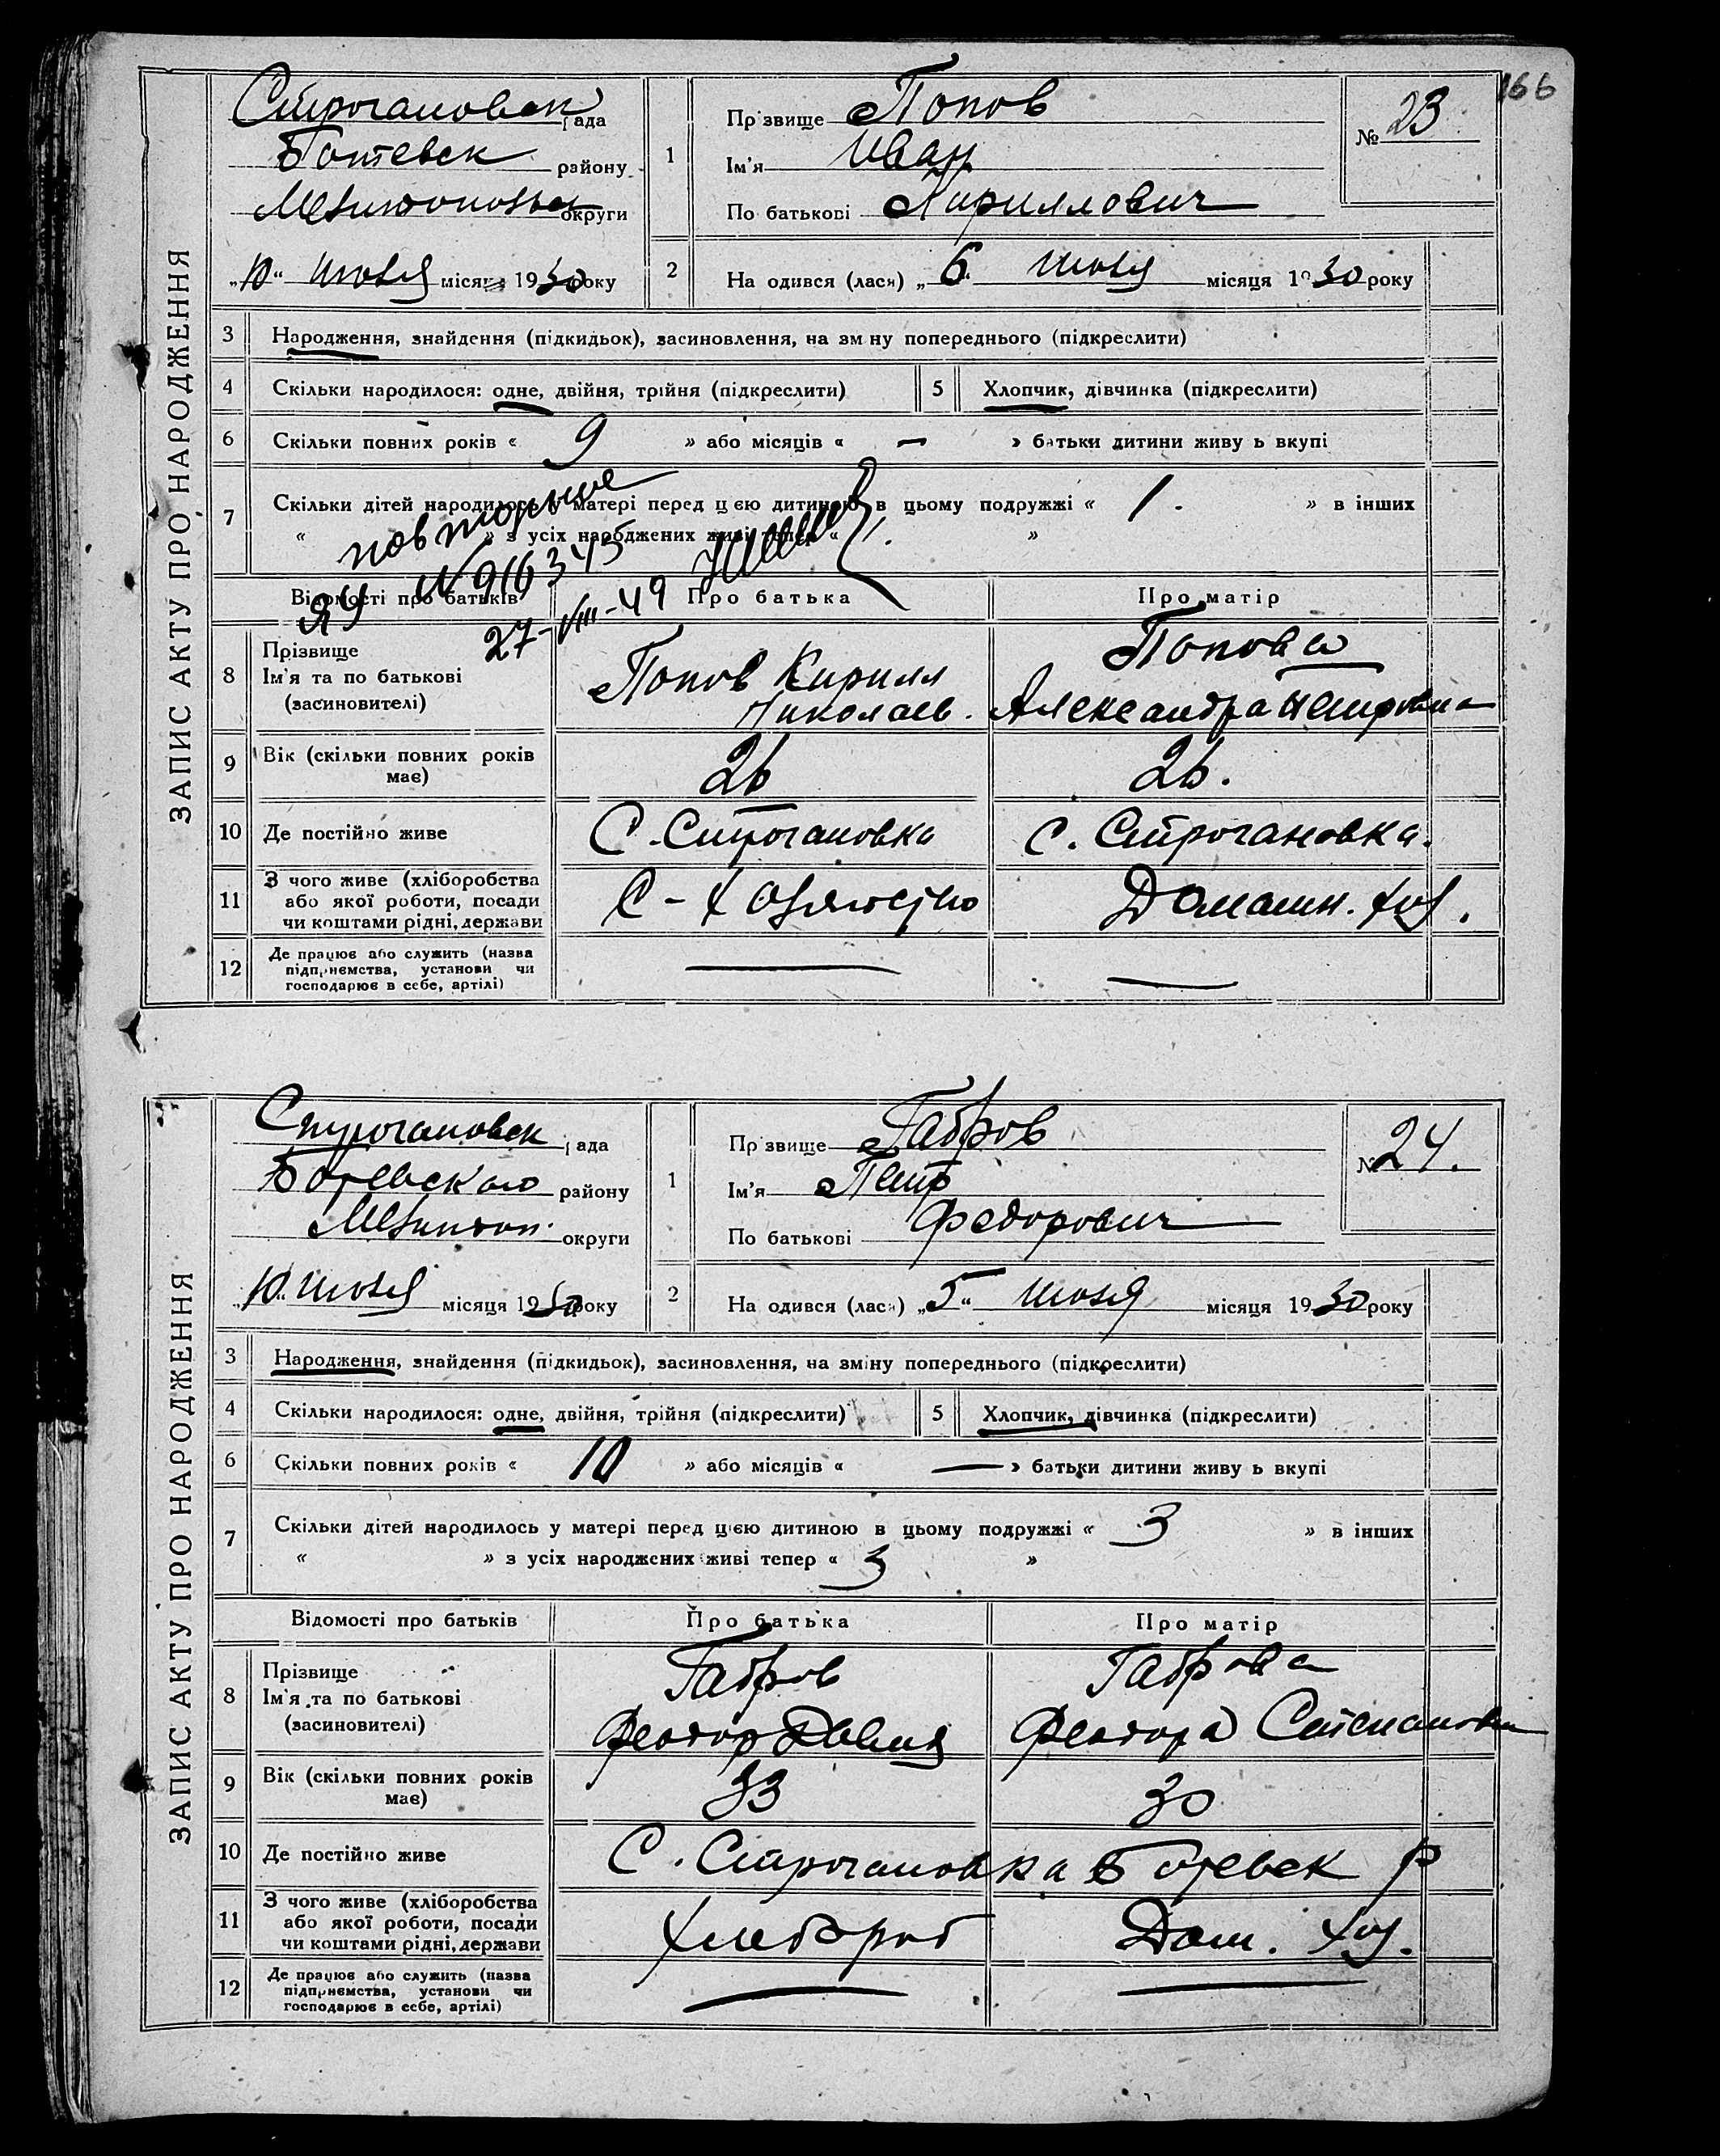 166
ЗАПИС АКТУ ПРО НАРОДЖЕННЯ
Строгановск рада
Ботевск району
Мелитопольск округи
„10“ июля місяця 1930 року
1
Прізвище Попов
Ім'я Иван
По батькові Кириллович
№ 23
2
Народився (лася) „6“ июля місяця 1930 року
3 Народження, знайдення (підкидьок), засиновлення, на зміну попереднього (підкреслити)
4 Скільки народилося: одне, двійня, трійня (підкреслити) 5 Хлопчик, дівчинка (підкреслити)
6 Скільки повних років « 9 » або місяців « — » батьки дитини живуть вкупі
7 Скільки дітей народилось у матері перед цією дитиною в цьому подружжі « 1. » в інших
« » з усіх народжених живі тепер « 1. »
повторное
ЯЧ № 916345
27-VIII-49
Відомості про батьків Про батька Про матір
8 Прізвище
Ім'я та по батькові
(засиновителі)
Попов Кирилл
Николаев.
Попова
Александра Петровна
9 Вік (скільки повних років
має)
26 26.
10 Де постійно живе С. Строгановка с. Строгановка.
11 З чого живе (хліборобства
або якої роботи, посади
чи коштами рідні, держави
С-Хозяйство Домашн. хоз.
12 Де працює або служить (назва
підприємства, установи чи
господарює в себе, артілі) — —
ЗАПИС АКТУ ПРО НАРОДЖЕННЯ
Строгановск рада
Ботевского району
Мелитоп. округи
„10“ июля місяця 1930 року
1
Прізвище Габров
Ім'я Петр
По батькові Федорович
№ 24.
2
Народився (лася) „5“ июля місяця 1930 року
3 Народження, знайдення (підкидьок), засиновлення, на зміну попереднього (підкреслити)
4 Скільки народилося: одне, двійня, трійня (підкреслити) 5 Хлопчик, дівчинка (підкреслити)
6 Скільки повних років « 10 » або місяців « — » батьки дитини живуть вкупі
7 Скільки дітей народилось у матері перед цією дитиною в цьому подружжі « 3 » в інших
« » з усіх народжених живі тепер « 3 »
Відомості про батьків Про батька Про матір
8 Прізвище
Ім'я та по батькові
(засиновителі)
Габров
Феодор
Габрова
Феодора Степановн
9 Вік (скільки повних років
має)
33 30
10 Де постійно живе С. Строгановка Ботевск р
11 З чого живе (хліборобства
або якої роботи, посади
чи коштами рідні, держави
Хлебороб Дом. хоз.
12 Де працює або служить (назва
підприємства, установи чи
господарює в себе, артілі) — —